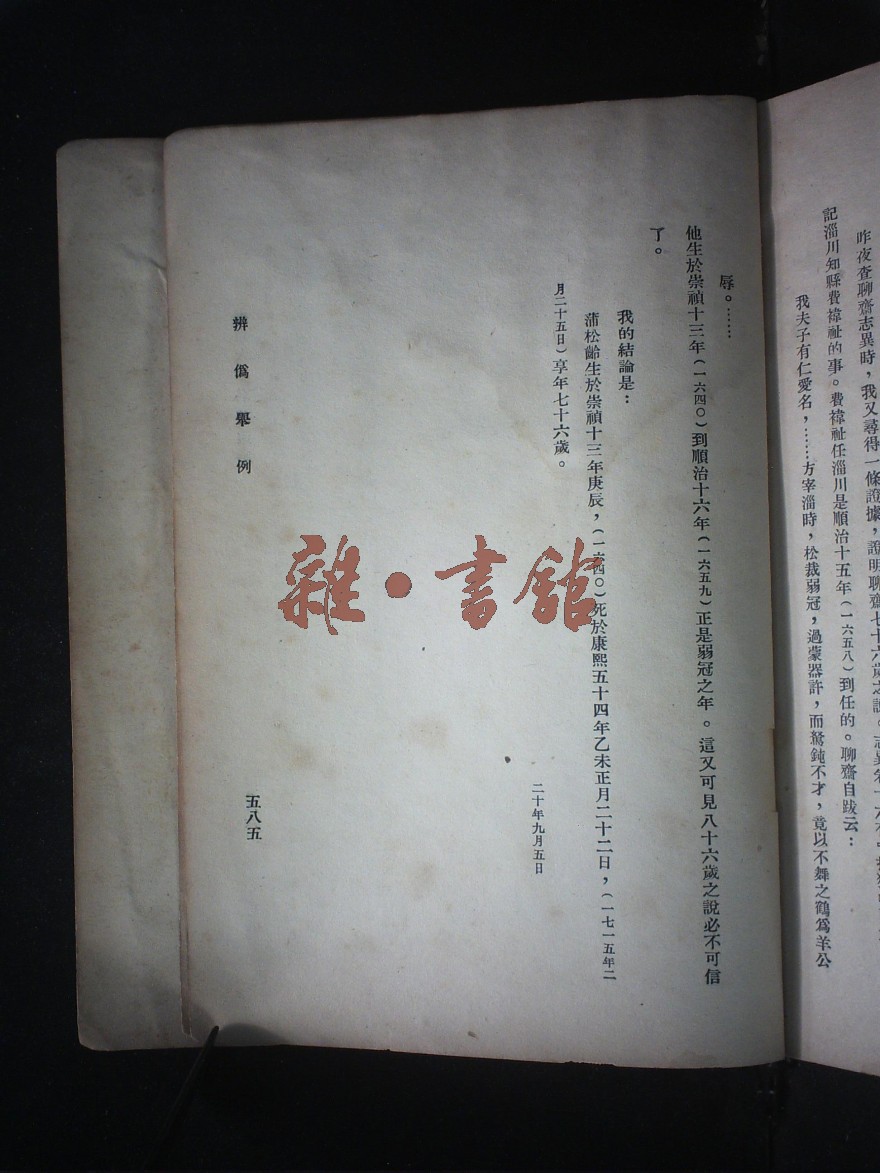 昨夜查聊齋志異時，我又尋得一條證據，證明聊齋七十六歲之說。志異卷十六
記淄川知縣費褘祉的事。費褘祉任淄川是順治十五年（一六五八）到任的。聊齋自跋云：
我夫子有仁愛名，……方宰淄時，松裁弱冠，過蒙器許，而駑鈍不才，竟以不舞之鶴爲羊公
辱。……
他生於崇禎十三年（一六四〇）到順治十六年（一六五九）正是弱冠之年。這又可見八十六歲之說必不可信
了。
我的結論是：
蒲松齡生於崇禎十三年庚辰，（一六四〇）死於康熙五十四年乙未正月二十二日，（一七一五年二
月二十五日）享年七十六歲。
二十年九月五日
辨僞舉例
五八五
雜·書館